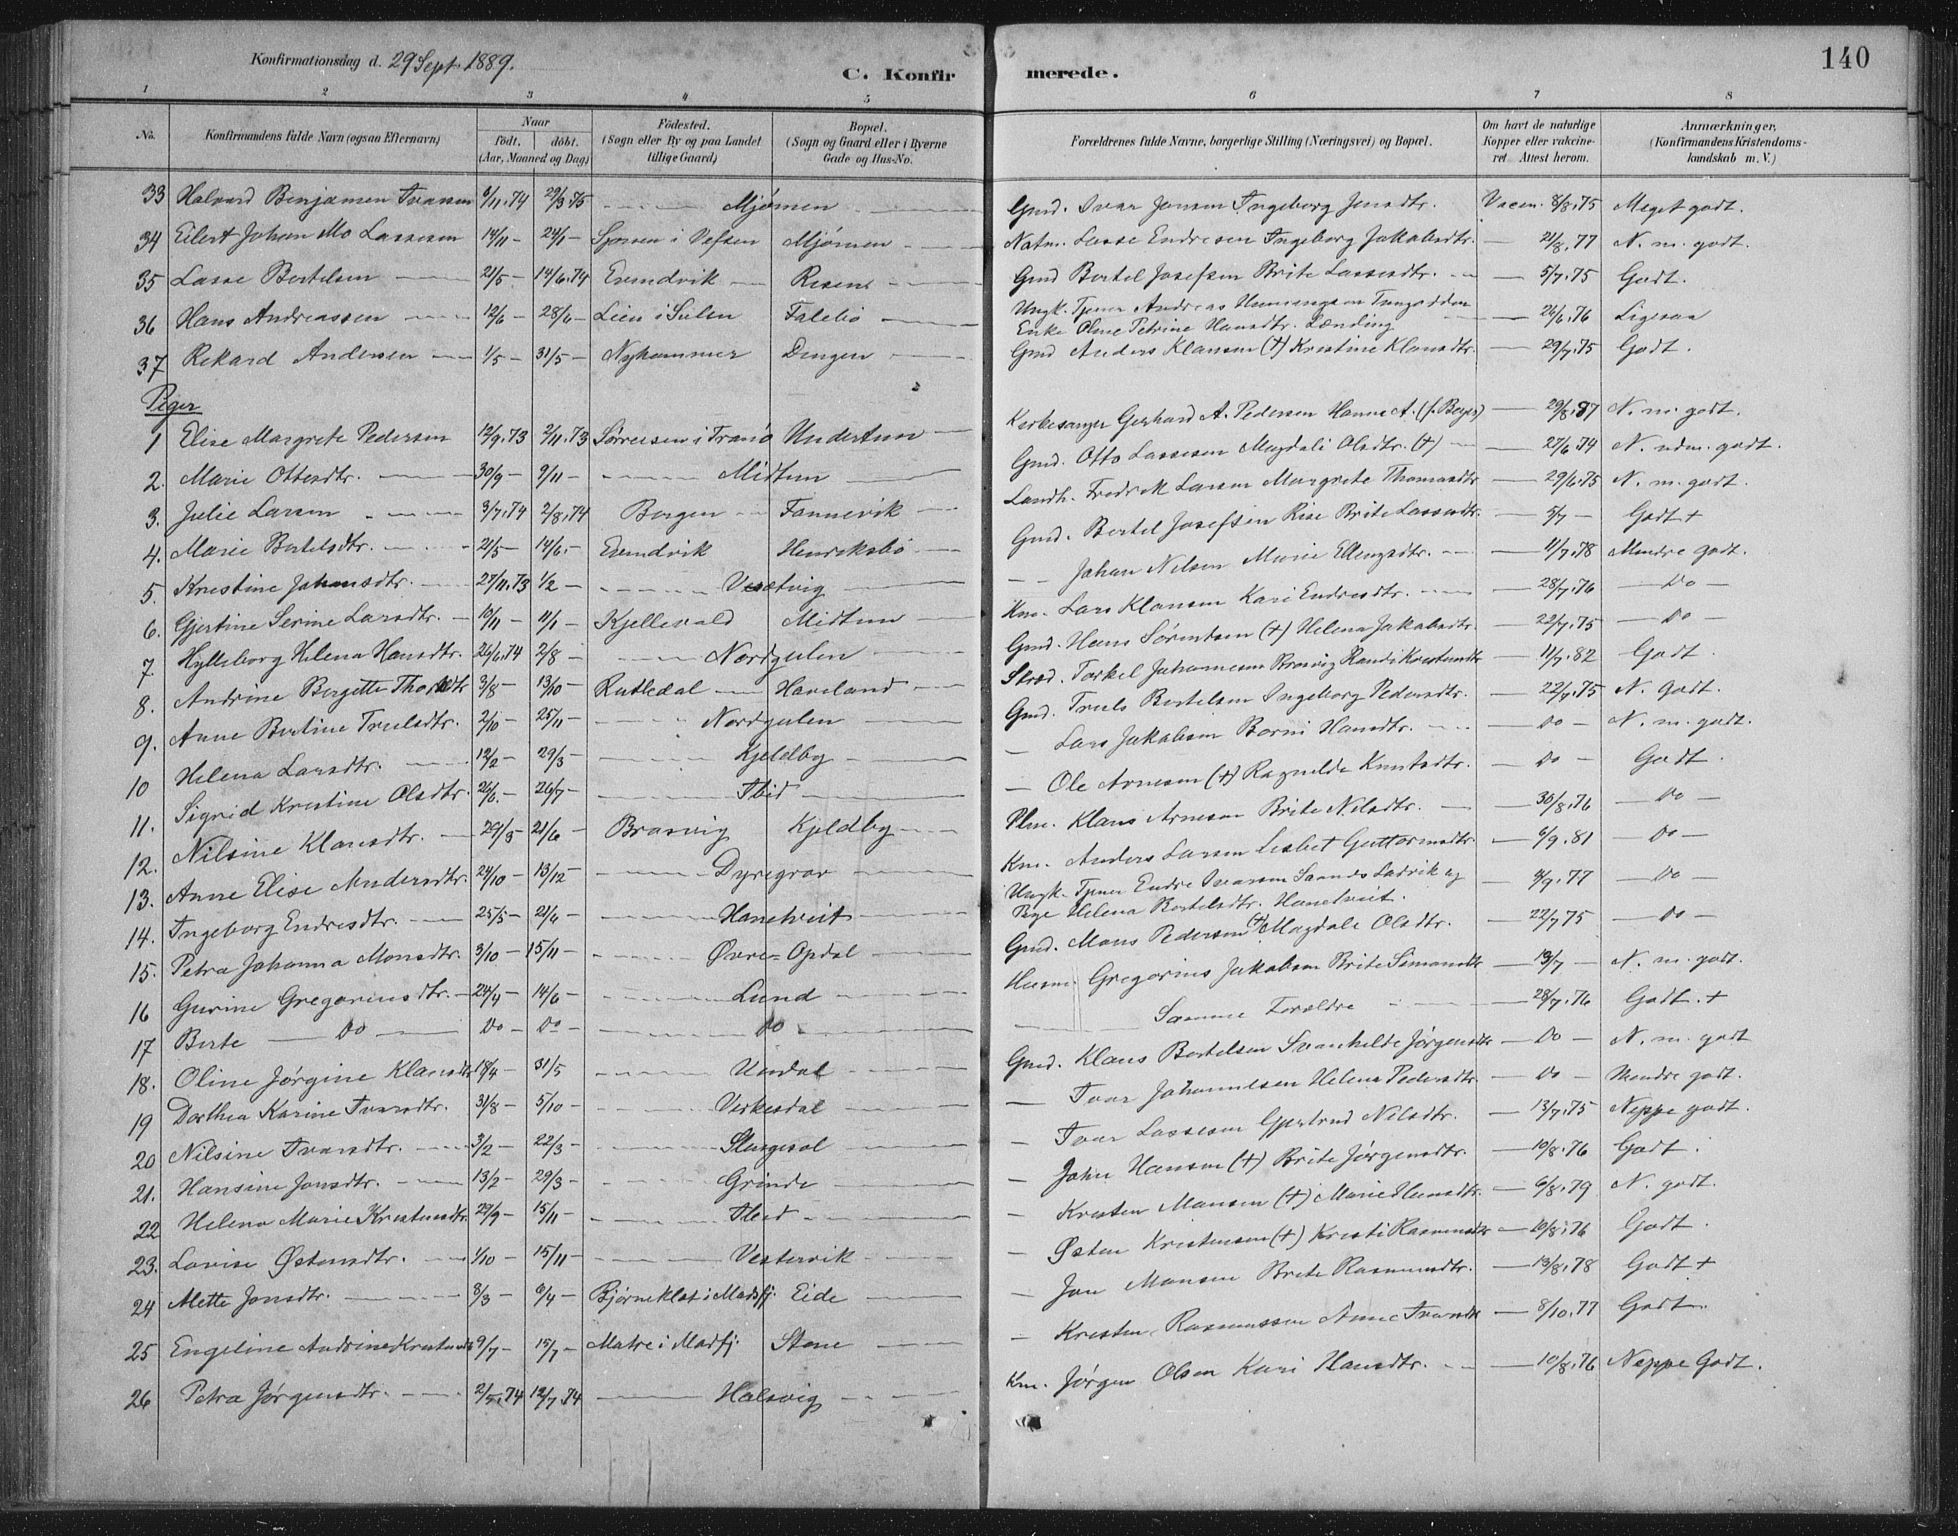 Konfirmationsdag d. 29 Sept. 1889.
C. Konfirmerede.
140
1 2 3 4 5 6 7 8
No. Konfirmandens fulde Navn (ogsaa Efternavn) Naar født, døbt. (Aar, Maaned og Dag) Fødested. (Sogn eller By og paa Landet tillige Gaard) Bopæl. (Sogn og Gaard eller i Byerne Gade og Hus-No. Forældrenes fulde Navne, borgerlige Stilling (Næringsvei) og Bopæl. Om havt de naturlige Kopper eller vakcineret. Attest herom. Anmærkninger. (Konfirmandens Kristendomskundskab m. V.)
33 Halvard Benjamen Ivarsen 6/11.74 29/3.75 Mjømen Gmd. Ivar Jensen Ingeborg Jensdtr. Vacen. 8/8.75 Meget godt.
34 Eilert Johan Mo Lassesen 14/11 - 24/1 - i Vefsen Mjømen Lasse Endresen Ingeborg Jakobsdtr. - 21/8.77 N. m. godt.
35 Lasse Bertelsen 21/5 - 14/6.74 Evendvik Risene Gmd Bertel Josefsen Brite Lassesdtr. - 5/7.75 Godt.
36 Hans Andreassen 12/6 - 28/6 - Lien i Sulen Falebø Ungk. Tjener Andreas Henningsen Tungodden
Enke Oline Petrine Hansdtr. Lænding - 26/6.76 Ligesaa
37 Rikard Andersen 1/5 - 31/5 - Nyhammer Dingen Gmd Anders Klausen (+) Kristine Klausdtr. - 29/7.75 Godt.
Piger
1 Elise Margrete Pedersen 12/9.73 2/11.73 Sørreisen i Tranø Undertun Kirkesanger Gerhard A. Pedersen Hanne A. (f. Berger) - 29/8.87 N. m. godt.
2. Marie Ottesdtr. 30/9 - 9/11 - Midtun Gmd. Otto Lassesen Magdali Olsdtr. (+) - 27/6.74 N. udm. godt.
3. Julie Larsen 3/7.74 2/8.74 Bergen Fannevik Landh. Fredrik Larsen Margrete Thomasdtr - 29/6.75 N. m. godt.
4. Marie Bertelsdtr. 21/5 - 14/6. - Evendvik Henriksbø Gmd. Bertel Josefsen Rise Brite Lassesdtr. - 5/7 - Godt +
5. Kristine Johansdtr. 27/11.73 1/2 - - - Johan Nilsen Marie Ellingsdtr. - 11/7.78 Mindre godt.
6. Gjertine Serine Larsdtr. 10/11 - 11/1 - Kjellevold Midtun Km. Lars Klausen Kari Endresdtr. - 28/7.76 - Do -
7 Hylleborg Helena Hansdtr. 26/6.74 2/8 - Nordgulen Gmd. Hans Sørentsen (+) Helena Jakobsdtr. - 22/7.75 - Do -
8. Andrine Bergitte 3/8 - 13/10 - Rutledal Haveland Torkel Johannesen Brosvig Randi - 11/7.82 Godt.
9. Anne Bertine Truelsdtr. 2/10 - 25/11 - Nordgulen Gmd. Truls Bertelsen Ingeborg Pedersdtr. - 22/7.75 N. Godt.
10 Helena Larsdtr. 12/2 - 29/3 - Kjeldby - Lars Jakobsen Borni Hansdtr. - Do - N. m. godt.
11. Sigrid Kristine Olsdtr. 26/6. - 26/7 - Ibid - Ole Arnesen (+) Ragnilde Knutsdtr. - Do - Godt.
12. Nilsine Klausdtr. 29/3 - 21/6 - Brosvig Kjeldby Klaus Arnesen Brite Nilsdtr. - 30/8.76 - Do -
13. Anne Elise Andersdtr. 24/10 - 13/12 - Dyregrov Km. Anders Larsen Lisbet Guttormsdtr. - 6/9.81 - Do -
14. Ingeborg Endresdtr. 25/5 - 21/4 - Hantveit Ungk. Tjener Endre Ivarsen Ladvik og
Pige Helena Bertelsdtr. Hantveit. - 9/9.77 - Do -
15. Petra Johanna Monsdtr. 3/10 - 15/11 - Øvre-Opdal Gmd. Mons Pedersen (+) Magdale Olsdtr. - 22/7 75 - Do -
16 Gurine Gregoriusdtr. 24/4 - 14/6 - Lund Husm. Gregorius Jakobsen Brite Simonsdtr - 13/7 - N. m. godt.
17 Berte - Do - Do - Do - Do - Samme Forældre - 28/7.76 Godt. +
18. Oline Jørgine Klausdtr 18/4 - 31/5 - Undal Gmd. Klaus Bertelsen Svanhilde Jørgensdtr - Do - N. m. godt
19 Dorthea Karine Ivarsdtr. 31/8 - 5/10 - Virkesdal - Ivar Johannesen Helena Pedersdtr. - Do - Mindre godt.
20 Nilsine Ivarsdtr. 3/2 - 22/3 - - Ivar Lassesen Gjertrud Nilsdtr. - 13/7.75 Neppe godt.
21. Hansine Jonsdtr. 13/2 - 29/3 - Grinde - John Hansen (+) Brite Jørgensdtr. - 10/8.76 Godt.
22 Helena Marie Kristensdtr 29/9 - 15/11 - Ibid - Kristen Monsen (+) Marie - 6/8.79 N. godt.
23. Lovise Østensdtr. 1/10 - 15/11 - Vestervik - Østen Kristensen (+) Kristi Rasmusdtr - 10/8.76 Godt.
24 Mette Jonsdtr. 3/3 - 6/4 - Bjørneklet i Masfj. Eide - Jon Monsen Brite Rasmusdtr. - 13/8.78 Godt +
25 Engeline Andrine Kristensdtr 9/7 - 15/7 - Matre i Masfj. Stene - Kristen Rasmussen Anne Ivarsdtr - 8/10.77 Godt.
26 Petra Jørgensdtr. 2/5.74 12/7.74 Halsvig Km. Jørgen Olsen Kari Hansdtr. - 10/8.76 Neppe Godt.